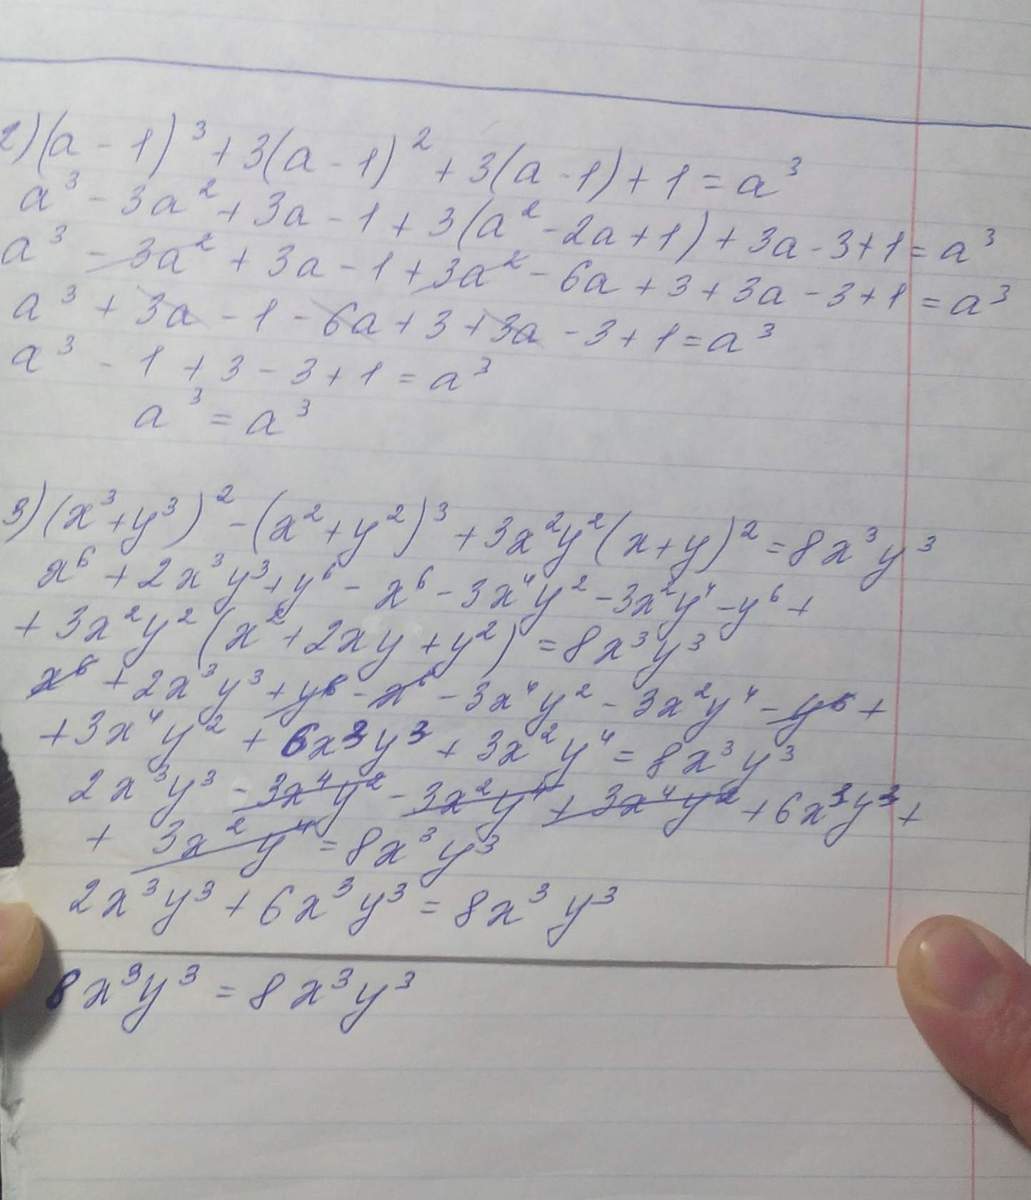 2) (a - 1)³ + 3(a - 1)² + 3(a - 1) + 1 = a³
a³ - 3a² + 3a - 1 + 3(a² - 2a + 1) + 3a - 3 + 1 = a³
a³ - 3a² + 3a - 1 + 3a² - 6a + 3 + 3a - 3 + 1 = a³
a³ + 3a - 1 - 6a + 3 + 3a - 3 + 1 = a³
a³ - 1 + 3 - 3 + 1 = a³
a³ = a³
3) (x³ + y³)² - (x² + y²)³ + 3x²y²(x + y)² = 8x³y³
x⁶ + 2x³y³ + y⁶ - x⁶ - 3x⁴y² - 3x²y⁴ - y⁶ +
+ 3x²y² (x² + 2xy + y²) = 8x³y³
x⁶ + 2x³y³ + y⁶ - x⁶ - 3x⁴y² - 3x²y⁴ - y⁶ +
+ 3x⁴y² + 6x³y³ + 3x²y⁴ = 8x³y³
2x³y³ - 3x⁴y² - 3x²y⁴ + 3x⁴y² + 6x³y³ +
+ 3x²y⁴ = 8x³y³
2x³y³ + 6x³y³ = 8x³y³
8x³y³ = 8x³y³